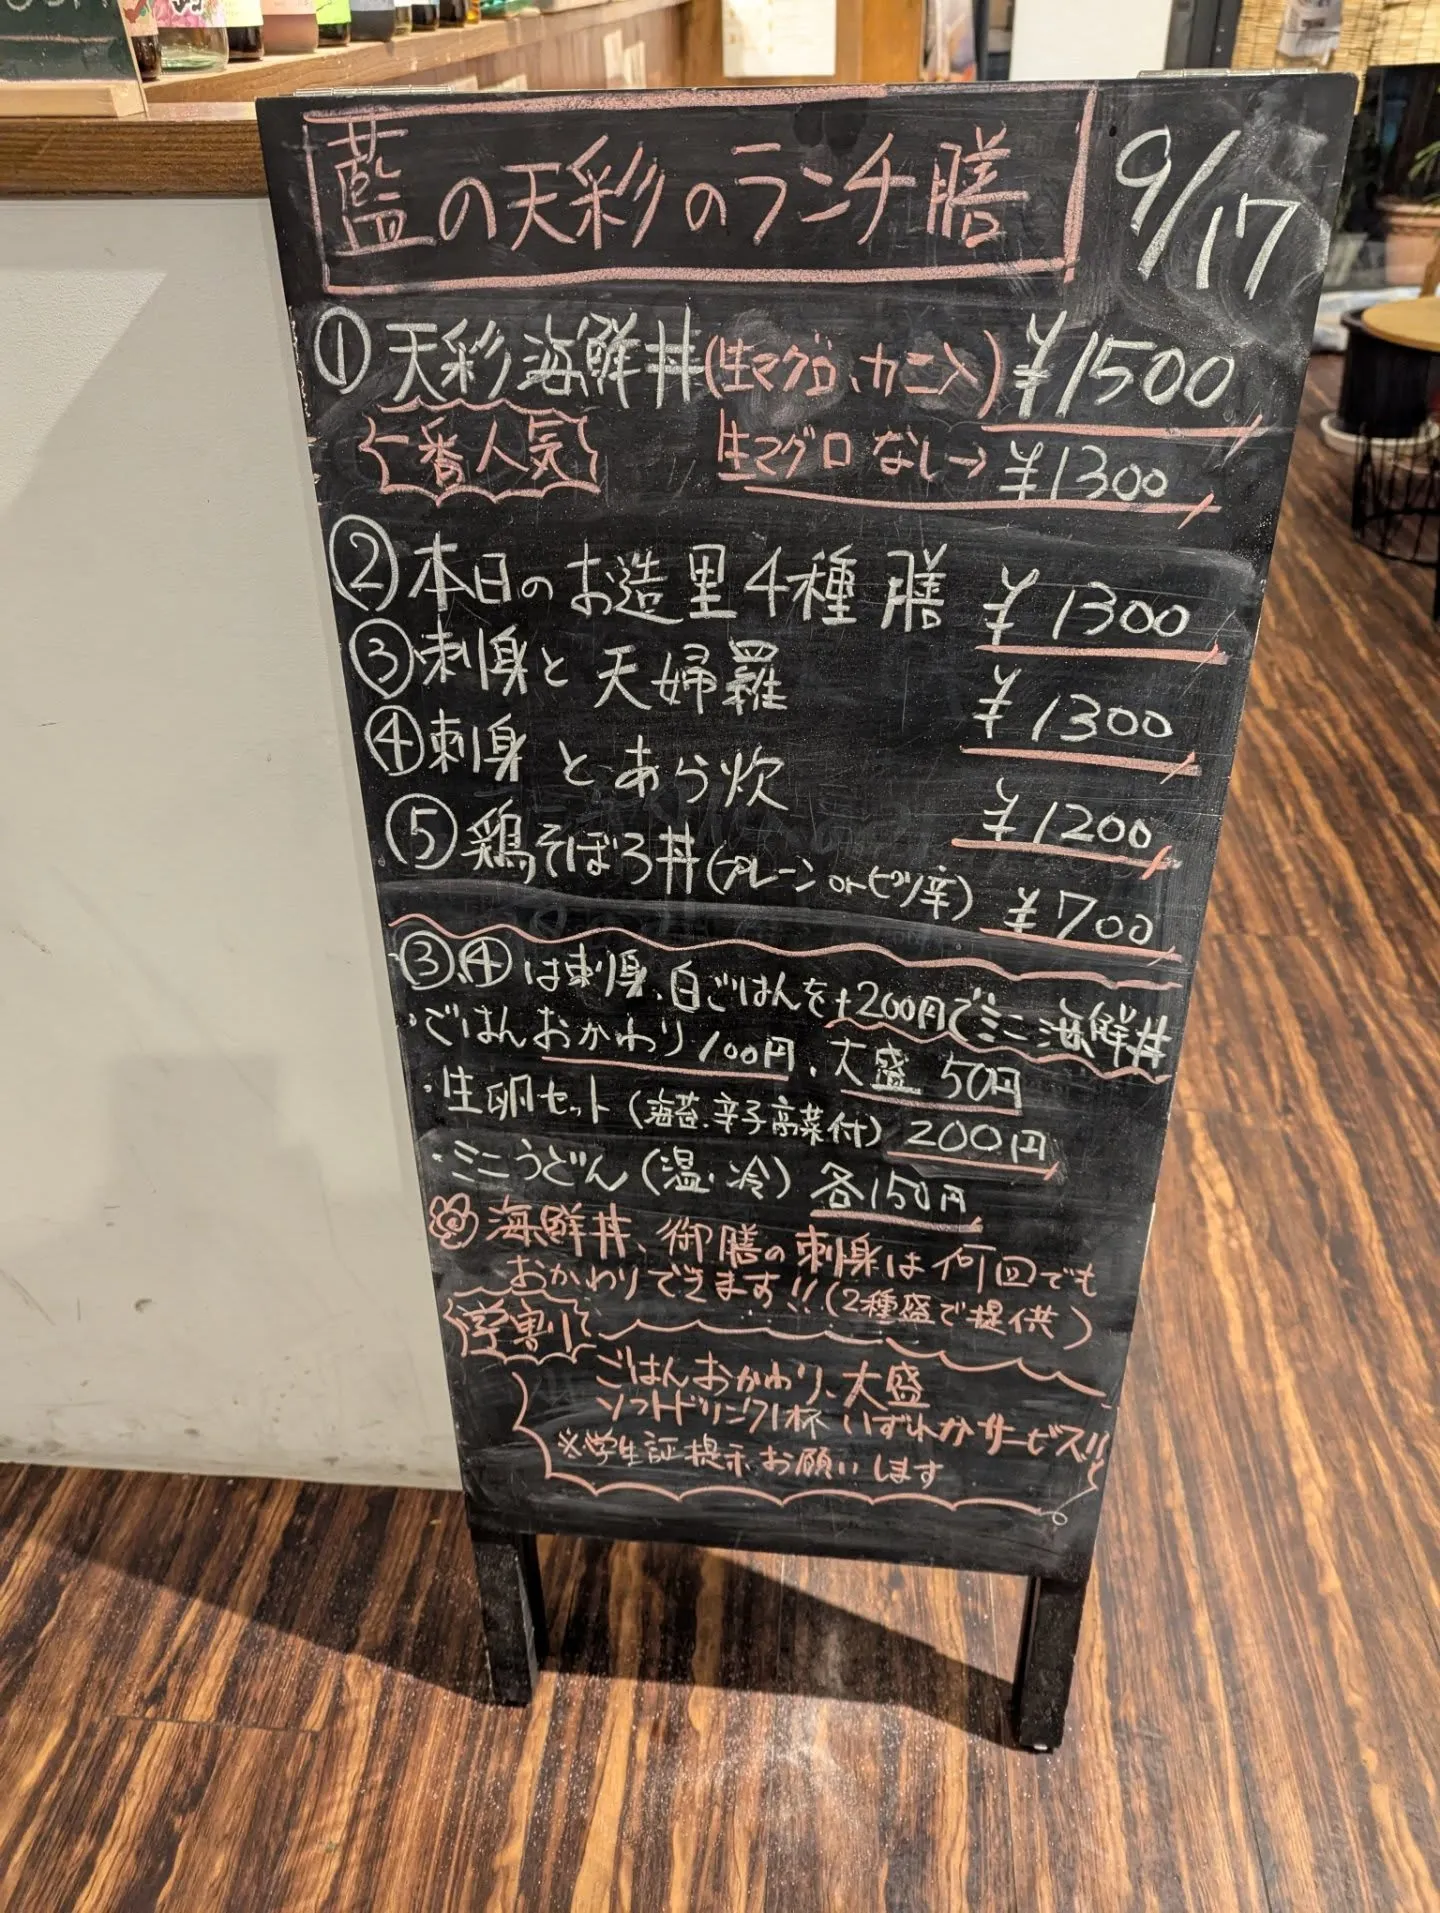 藍の天彩のランチ膳 9/17
①天彩海鮮丼(生マグロ、カニ入) ¥1500
一番人気 生マグロなし→ ¥1300
②本日のお造里4種膳 ¥1300
③刺身と天婦羅 ¥1300
④刺身とあら炊 ¥1200
⑤鶏そぼろ丼(プレーンorピリ辛) ¥700
③、④は刺身、白ごはんを+200円でミニ海鮮丼
・ごはんおかわり100円、大盛50円
・生卵セット(海苔、辛子高菜付)200円
・ミニうどん(温・冷)各150円
海鮮丼、御膳の刺身は何回でも
おかわりできます!!(2種盛で提供)
学割
ごはんおかわり、大盛
ソフトドリンク1杯いずれかサービス!!
※学生証提示お願いします